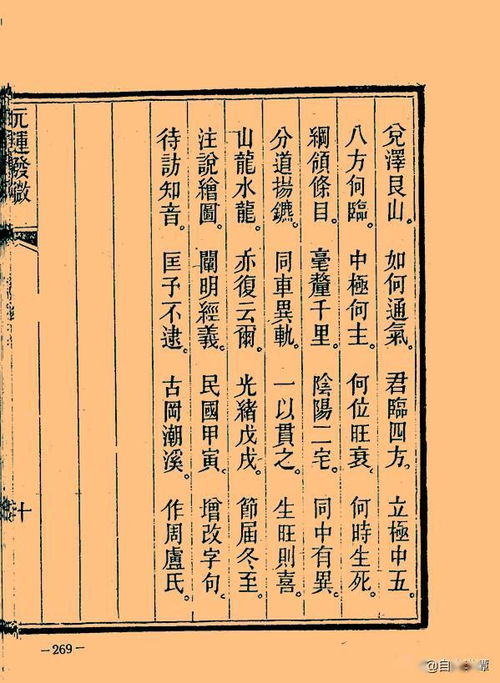 兌澤艮山。如何通氣。君臨四方。立極中五。
八方何臨。中極何主。何位旺衰。何時生死。
綱領條目。毫釐千里。陰陽二宅。同中有異。
分道揚鑣。同車異軌。一以貫之。生旺則喜。
山龍水龍。亦復云爾。光緒戊戌。節屆冬至。
注說繪圖。闡明經義。民國甲寅。增改字句。
待訪知音。匡予不逮。古岡潮溪。作周盧氏。
元運發微
十
—269—
@自